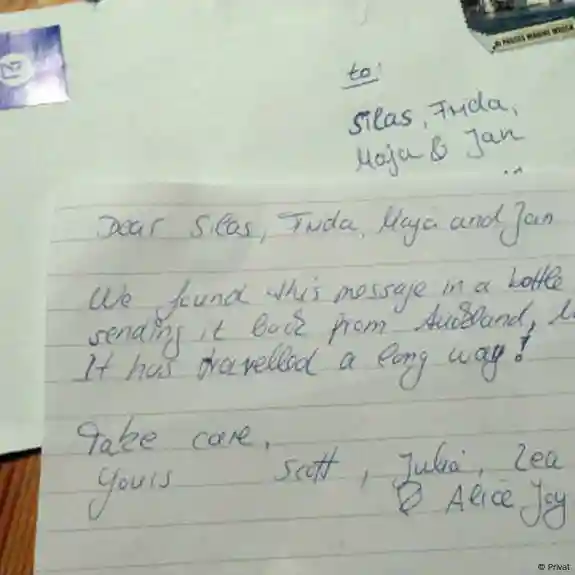 to:
Silas, Frida,
Maja & Jan
Dear Silas, Frida, Maja and Jan
We found this message in a bottle
sending it back from Auckland,
It has travelled a long way!
Take care,
Yours Scott, Julia, Zea
& Alice Joy
© Privat